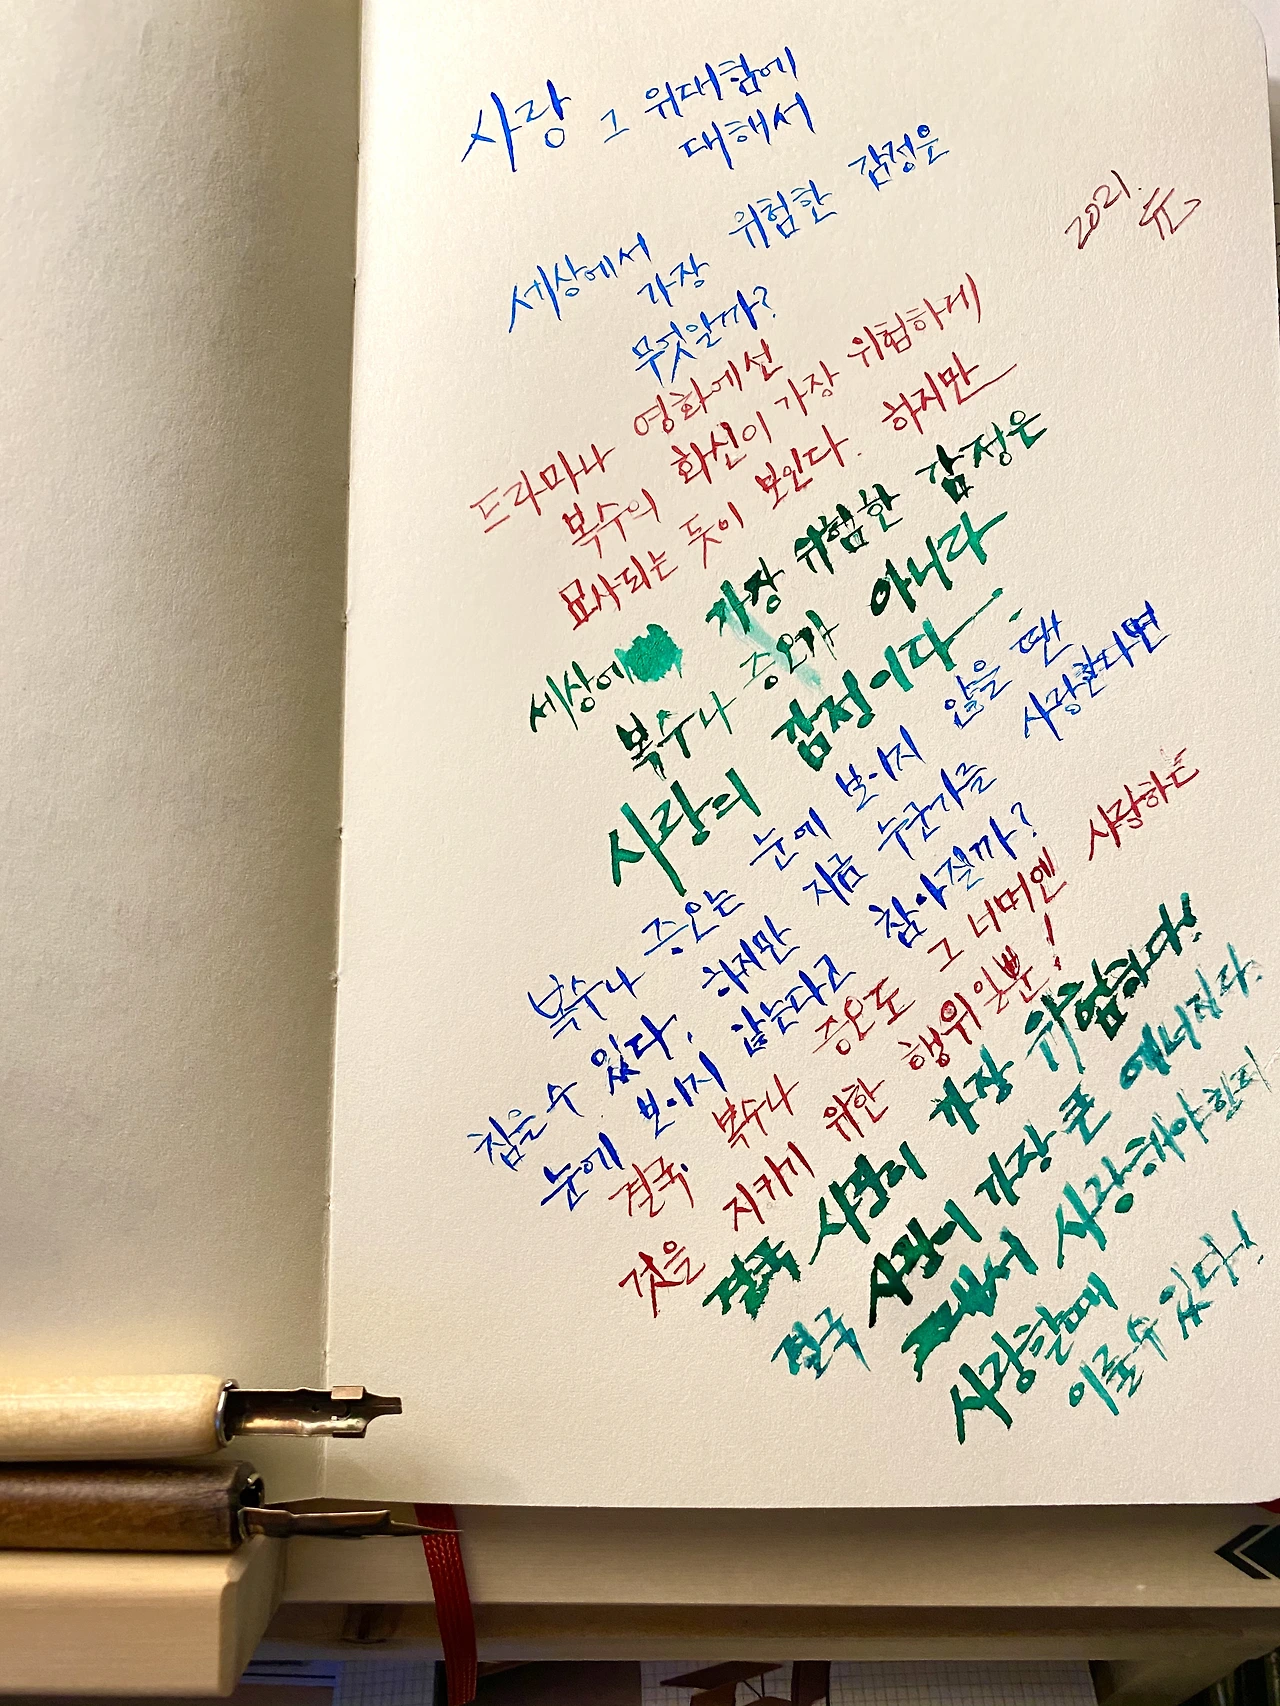 사랑 그 위대함에
대해서
2021. 윤
세상에서 가장 위험한 감정은
무엇일까?
드라마나 영화에선
복수의 화신이 가장 위험하게
묘사되는 듯이 보인다. 하지만
세상에 가장 위험한 감정은
복수나 증오가 아니라
사랑의 감정이다.
복수나 증오는 눈에 보이지 않을 땐
참을 수 있다. 하지만 지금 누군가를 사랑한다면
눈에 보이지 않는다고 참아질까?
결국, 복수나 증오도 그 너머엔 사랑하는
것을 지키기 위한 행위일뿐!
결국 사랑이 가장 위험하다!
결국 사랑이 가장 큰 에너지다.
그래서 사랑해야 한다
사랑할때 이룰 수 있다!